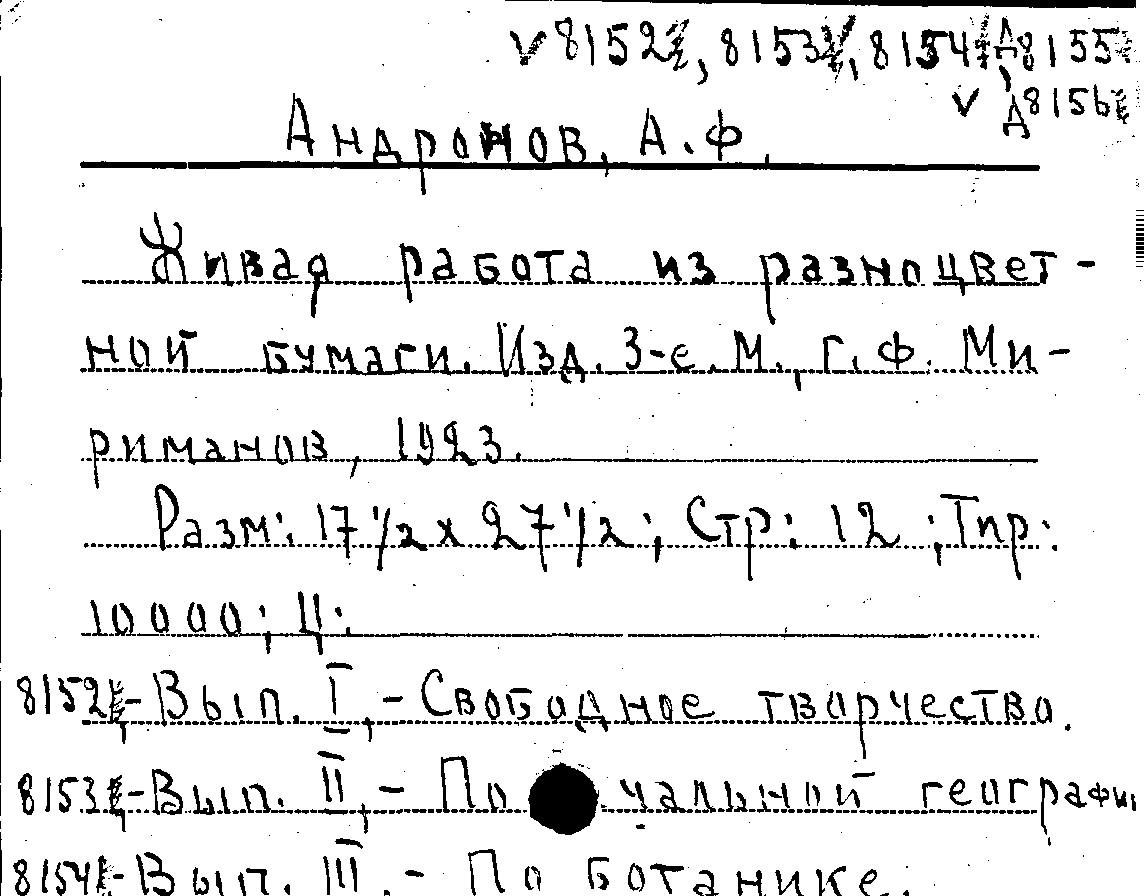 V 8152, 8153, 8154, Д8155
V Д8156
Андронов, А.Ф.
Живая работа из разноцвет-
ной бумаги. Изд. 3-е. М., Г.Ф. Ми-
риманов, 1923.
Разм: 17 1/2 х 27 1/2; Стр: 12; Тир:
10000; Ц:
8152-Вып. I, -Свободное творчество.
8153-Вып. II, - По чальной географии
8154-Вып. III. - По ботанике.